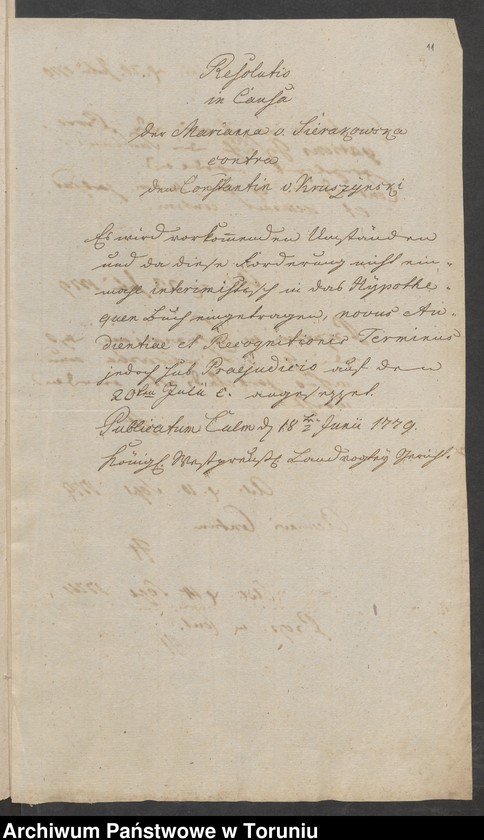 11
Resolutio
in Causa
der Marianna v. Sierakowska
contra
den Constantin v. Kruszynski
Es wird vorkommenden Umständen
und da diese Forderung nicht ein-
mahl interimistisch in das Hÿpothe-
quen Buch eingetragen, novus Au-
dientiae et Recognitionis Terminus
jedoch sub Praejudicio auf den
20ten Julii c. angesezzet.
Publicatum Culm d 18ten Junii 1779.
Königl. Westpreuß. Landvogteÿ Gericht.
Archiwum Państwowe w Toruniu